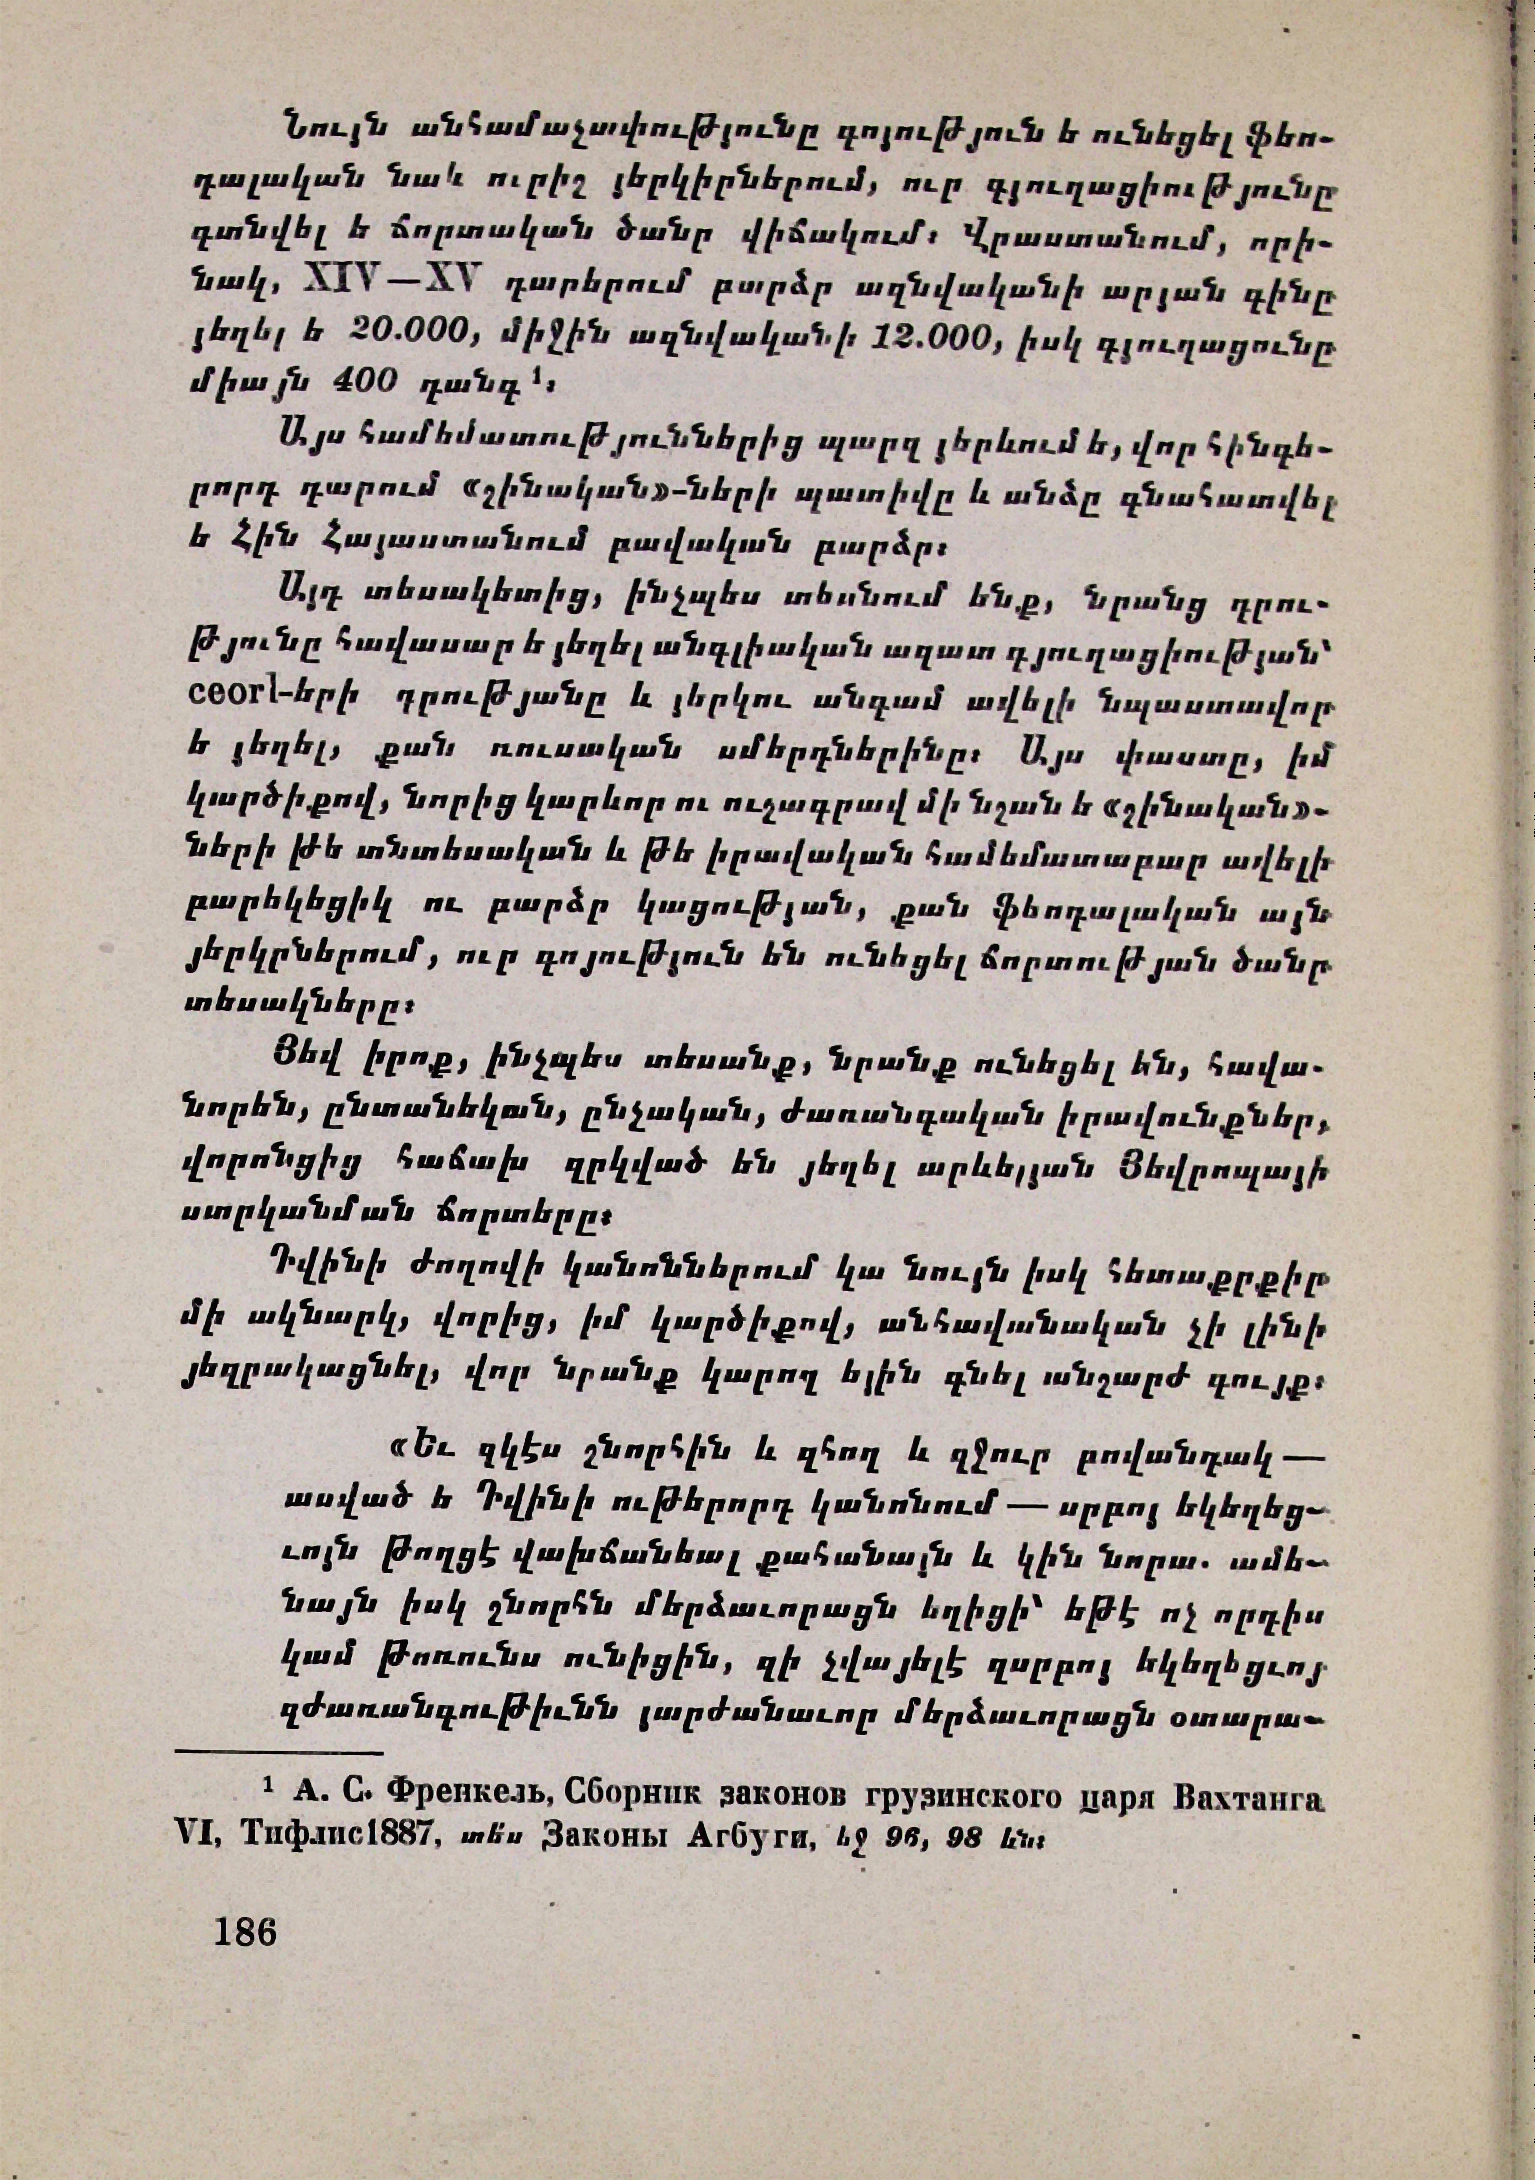 Նույն անհամաչափությունը գոյություն ե ունեցել ֆեո-
դալական նաև ուրիշ յերկիրներում, ուր գյուղացիությունը
գտնվել ե ճորտական ծանր վիճակում։ Վրաստանում, որի-
նակ, XIV—XV դարերում բարձր աղնվականի արյան գինը
յեղել ե 20.000, միջին ազնվականի 12.000, իսկ գյուղացունը
միայն 400 դանգ ¹։
Այս համեմատություններից պարզ յերևում ե, վոր հինգե-
րորդ դարում «շինական»-ների պատիվը և անձը գնահատվել
ե Հին Հայաստանում բավական բարձր։
Այդ տեսակետից, ինչպես տեսնում ենք, նրանց դրու-
թյունը հավասար ե յեղել անգլիական ազատ գյուղացիության՝
ceorl-երի դրությանը և յերկու անգամ ավելի նպաստավոր
ե յեղել, քան ռուսական սմերդներինը։ Այս փաստը, իմ
կարծիքով, նորից կարևոր ու ուշագրավ մի նշան ե «շինական»-
ների թե տնտեսական և թե իրավական համեմատաբար ավելի
բարեկեցիկ ու բարձր կացության, քան ֆեոդալական այն
յերկրներում, ուր գոյություն են ունեցել ճորտության ծանր
տեսակները։
Յեվ իրոք, ինչպես տեսանք, նրանք ունեցել են, հավա-
նորեն, ընտանեկան, ընչական, ժառանգական իրավունքներ,
վորոնցից հաճախ զրկված են յեղել արևելյան Յեվրոպայի
ստրկանման ճորտերը։
Դվինի ժողովի կանոններում կա նույն իսկ հետաքրքիր
մի ակնարկ, վորից, իմ կարծիքով, անհավանական չի լինի
յեզրակացնել, վոր նրանք կարող եյին գնել անշարժ գույք։
«Եւ զկէս շնորհին և զհող և զջուր բովանդակ —
ասված ե Դվինի ութերորդ կանոնում — սրբոյ եկեղեց-
ւոյն թողցէ վախճանեալ քահանայն և կին նորա. ամե-
նայն իսկ շնորհն մերձաւորացն եղիցի՝ եթէ ոչ որդիս
կամ թոռունս ունիցին, զի չվայելէ զսրբոյ եկեղեցւոյ
զժառանգութիւնն յարժանաւոր մերձաւորացն օտարա-
¹ А. С. Френкель, Сборник законов грузинского царя Вахтанга
VI, Тифлис1887, տե՛ս Законы Агбуги, եջ 96, 98 են։
186